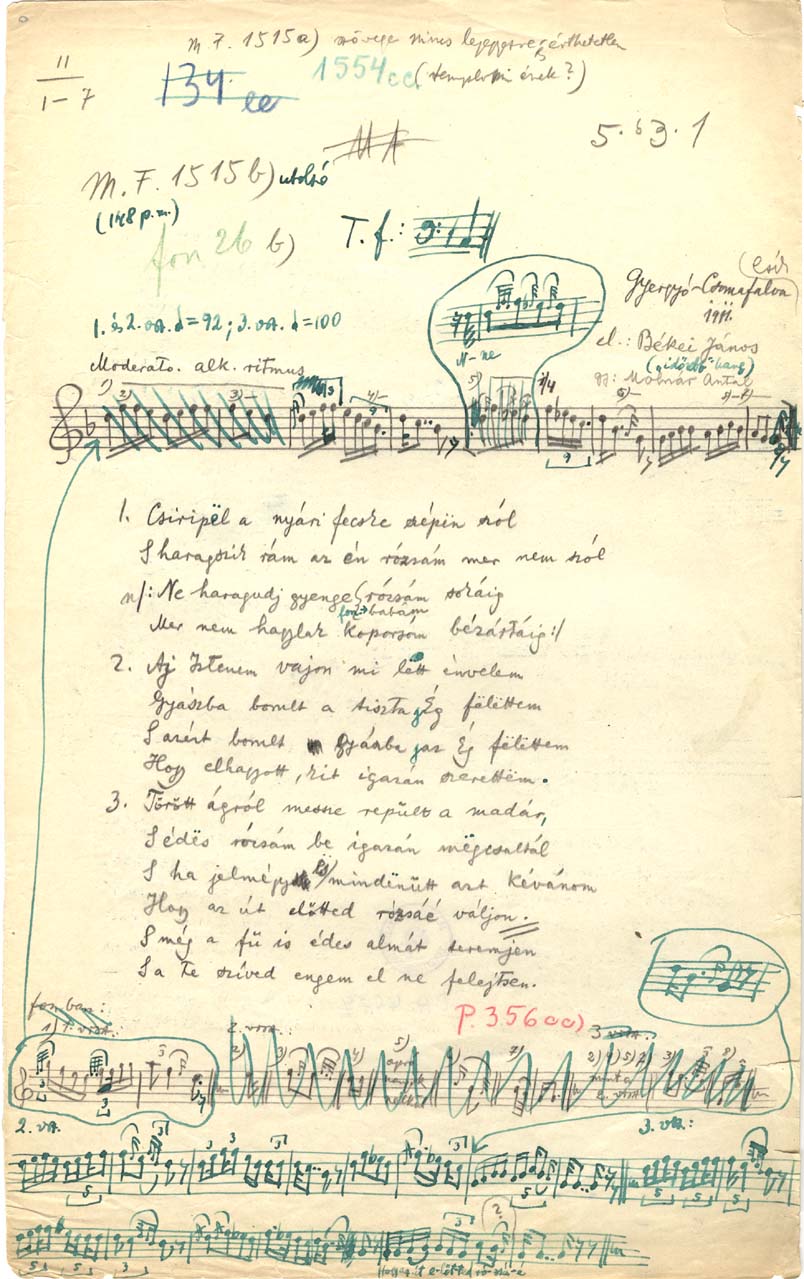 M.F. 1515a) szövege nincs lejegyezve, érthetetlen
(templomi ének?)
II
1-7
134 ee
1554 cc
5.63.1
M.F. 1515b) utolsó
(148 p.m.)
fon 26 b)
T.f.:
Csík
Gyergyó-Csomafalva
1911.
1. és 2. vsz. = 92; 3. vsz. = 100
el.: Békei János
("idősebb" hang)
gy: Molnár Antal
Moderato. alk. ritmus
N-ne
1. Csiripël a nyári fecske szépin szól
S haragszik rám az én rózsám mer nem szól
n/: Ne haragudj gyenge rózsám sokáig
fon: babám
Mer nem hagylak koporsóm bézártáig:/
2. Aj Istenem vajon mi lëtt énvelem
Gyászba borult a tiszta jÉg fëlëttem
S azért borult gyászba jaz Ég fëlëttem
Hogy elhagyott, kit igazán szerettëm.
3. Törött ágról messze repült a madár,
S édës rózsám be igazán mëgcsaltál
S ha jelmégy is mindënütt azt kévánom
Hogy az út előtted rózsáé váljon.
S még a fű is édes almát teremjen
S a te szíved engem el ne felejtsen.
fon.ban:
1) 1. vsz.:
2. vsz.:
P. 356 aa)
3. vsz.:
2. vsz.
3. vsz.:
Hogy az út e-lőtted ró-zsá-é